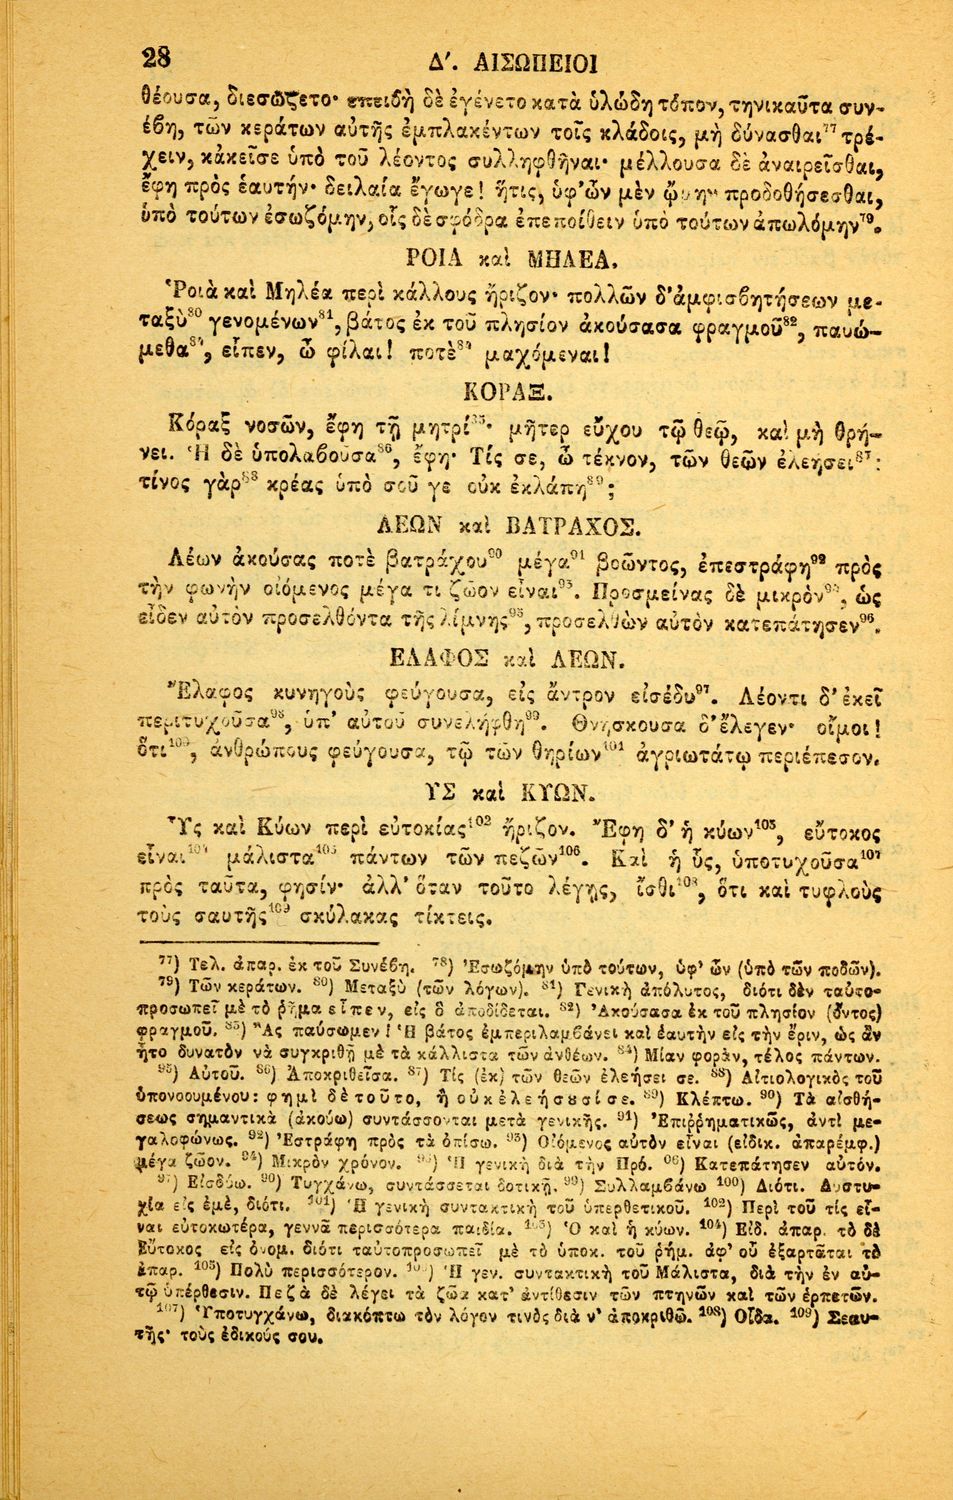 28
Δʹ. ΑΙΣΩΠΕΙΟΙ
θέουσα, διεσῴζετο· επειδὴ δὲ ἐγένετο κατὰ ὑλώδη τόπον, τηνικαῦτα συν-
έβη, τῶν κεράτων αὐτῆς ἐμπλακέντων τοῖς κλάδοις, μὴ δύνασθαι⁷⁷ τρέ-
χειν, κἀκεῖσε ὑπὸ τοῦ λέοντος συλληφθῆναι· μέλλουσα δὲ ἀναιρεῖσθαι,
ἔφη πρὸς ἑαυτήν· δειλαία ἔγωγε! ἥτις, ὑφ’ ὧν μὲν ᾤμην⁷⁸ προδοθήσεσθαι,
ὑπὸ τούτων ἐσωζόμην, οἷς δὲ σφόδρα ἐπεποίθειν ὑπὸ τούτων ἀπωλόμην⁷⁹.
ΡΟΙΑ καὶ ΜΗΛΕΑ.
Ῥοιὰ καὶ Μηλέα περὶ κάλλους ἤριζον· πολλῶν δ’ ἀμφισβητήσεων με-
ταξὺ⁸⁰ γενομένων⁸¹, βάτος ἐκ τοῦ πλησίον ἀκούσασα φραγμοῦ⁸², παυώ-
μεθα⁸³, εἶπεν, ὦ φίλαι! ποτὲ⁸⁴ μαχόμεναι!
ΚΟΡΑΞ.
Κόραξ νοσῶν, ἔφη τῇ μητρί⁸⁵· μῆτερ εὔχου τῷ θεῷ, καὶ μὴ θρή-
νει. Ἡ δὲ ὑπολαβοῦσα⁸⁶, ἔφη· Τίς σε, ὦ τέκνον, τῶν θεῶν ἐλεήσει⁸⁷:
τίνος γὰρ⁸⁸ κρέας ὑπὸ σοῦ γε οὐκ ἐκλάπη⁸⁹;
ΛΕΩΝ καὶ ΒΑΤΡΑΧΟΣ.
Λέων ἀκούσας ποτὲ βατράχου⁹⁰ μέγα⁹¹ βοῶντος, ἐπεστράφη⁹² πρὸς
τὴν φωνὴν οἰόμενος μέγα τι ζῶον εἶναι⁹³. Προσμείνας δὲ μικρὸν⁹⁴, ὡς
εἶδεν αὐτὸν προσελθόντα τῆς λίμνης⁹⁵, προσελθὼν αὐτὸν κατεπάτησεν⁹⁶.
ΕΛΑΦΟΣ καὶ ΛΕΩΝ.
Ἔλαφος κυνηγοὺς φεύγουσα, εἰς ἄντρον εἰσέδυ⁹⁷. Λέοντι δ’ ἐκεῖ
περιτυχοῦσα⁹⁸, ὑπ’ αὐτοῦ συνελήφθη⁹⁹. Θνήσκουσα δ’ ἔλεγεν· οἴμοι!
ὅτι¹⁰⁰, ἀνθρώπους φεύγουσα, τῷ τῶν θηρίων¹⁰¹ ἀγριωτάτῳ περιέπεσον.
ΥΣ καὶ ΚΥΩΝ.
Ὗς καὶ Κύων περὶ εὐτοκίας¹⁰² ἤριζον. Ἔφη δ’ ἡ κύων¹⁰³, εὔτοκος
εἶναι¹⁰⁴ μάλιστα¹⁰⁵ πάντων τῶν πεζῶν¹⁰⁶. Καὶ ἡ ὗς, ὑποτυχοῦσα¹⁰⁷
πρὸς ταῦτα, φησίν· ἀλλ’ ὅταν τοῦτο λέγῃς, ἴσθι¹⁰⁸, ὅτι καὶ τυφλοὺς
τοὺς σαυτῆς¹⁰⁹ σκύλακας τίκτεις.
⁷⁷) Τελ. ἀπαρ. ἐκ τοῦ Συνέβη. ⁷⁸) Ἐσωζόμην ὑπὸ τούτων, ὑφ’ ὧν (ὑπὸ τῶν ποδῶν).
⁷⁹) Τῶν κεράτων. ⁸⁰) Μεταξὺ (τῶν λόγων). ⁸¹) Γενικὴ ἀπόλυτος, διότι δὲν ταὐτο-
προσωπεῖ μὲ τὸ ῥῆμα εἶπεν, εἰς ὃ ἀποδίδεται. ⁸²) Ἀκούσασα ἐκ τοῦ πλησίον (ὄντος)
φραγμοῦ. ⁸³) Ἂς παύσωμεν! Ἡ βάτος ἐμπεριλαμβάνει καὶ ἑαυτὴν εἰς τὴν ἔριν, ὡς ἂν
ἦτο δυνατὸν νὰ συγκριθῇ μὲ τὰ κάλλιστα τῶν ἀνθέων. ⁸⁴) Μίαν φορὰν, τέλος πάντων.
⁸⁵) Αὐτοῦ. ⁸⁶) Ἀποκριθεῖσα. ⁸⁷) Τίς (ἐκ) τῶν θεῶν ἐλεήσει σε. ⁸⁸) Αἰτιολογικὸς τοῦ
ὑπονοουμένου: φημὶ δὲ τοῦτο, ἢ οὐκ ἐλεήσουσί σε. ⁸⁹) Κλέπτω. ⁹⁰) Τὰ αἰσθή-
σεως σημαντικὰ (ἀκούω) συντάσσονται μετὰ γενικῆς. ⁹¹) Ἐπιῤῥηματικῶς, ἀντὶ με-
γαλοφώνως. ⁹²) Ἐστράφη πρὸς τὰ ὀπίσω. ⁹³) Οἰόμενος αὐτὸν εἶναι (εἰδικ. ἀπαρέμφ.)
μέγα ζῶον. ⁹⁴) Μικρὸν χρόνον. ⁹⁵) Ἡ γενικὴ διὰ τὴν Πρό. ⁹⁶) Κατεπάτησεν αὐτόν.
⁹⁷) Εἰσδύω. ⁹⁸) Τυγχάνω, συντάσσεται δοτικῇ. ⁹⁹) Συλλαμβάνω ¹⁰⁰) Διότι. Δυστυ-
χία εἰς ἐμὲ, διότι. ¹⁰¹) Ἡ γενικὴ συντακτικὴ τοῦ ὑπερθετικοῦ. ¹⁰²) Περὶ τοῦ τίς εἶ-
ναι εὐτοκωτέρα, γεννᾷ περισσότερα παιδία. ¹⁰³) Ὁ καὶ ἡ κύων. ¹⁰⁴) Εἰδ. ἀπαρ. τὸ δὲ
Εὔτοκος εἰς ὀνομ. διότι ταὐτοπροσωπεῖ μὲ τὸ ὑποκ. τοῦ ῥήμ. ἀφ’ οὗ ἐξαρτᾶται τὸ
ἀπαρ. ¹⁰⁵) Πολὺ περισσότερον. ¹⁰⁶) Ἡ γεν. συντακτικὴ τοῦ Μάλιστα, διὰ τὴν ἐν αὐ-
τῷ ὑπέρθεσιν. Πεζὰ δὲ λέγει τὰ ζῶα κατ’ ἀντίθεσιν τῶν πτηνῶν καὶ τῶν ἑρπετῶν.
¹⁰⁷) Ὑποτυγχάνω, διακόπτω τὸν λόγον τινὸς διὰ ν’ ἀποκριθῶ. ¹⁰⁸) Οἶδα. ¹⁰⁹) Σεαυ-
τῆς· τοὺς ἐδικούς σου.